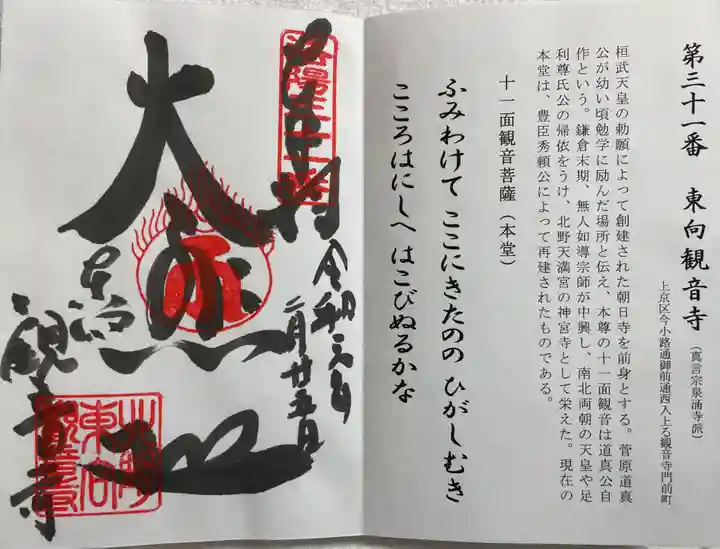 第三十一番　東向観音寺（真言宗泉涌寺派）
上京区今小路通御前通西入上る観音寺門前町
桓武天皇の勅願によって創建された朝日寺を前身とする。菅原道真
公が幼い頃勉学に励んだ場所と伝え、本尊の十一面観音は道真公自
作という。鎌倉末期、無人如導宗師が中興し、南北両朝の天皇や足
利尊氏公の帰依をうけ、北野天満宮の神宮寺として栄えた。現在の
本堂は、豊臣秀頼公によって再建されたものである。
十一面観音菩薩（本堂）
ふみわけて ここにきたのの ひがしむき
こころはにしへ はこびぬるかな
洛陽三十一番
令和六年
二月廿五日
大悲
観音寺